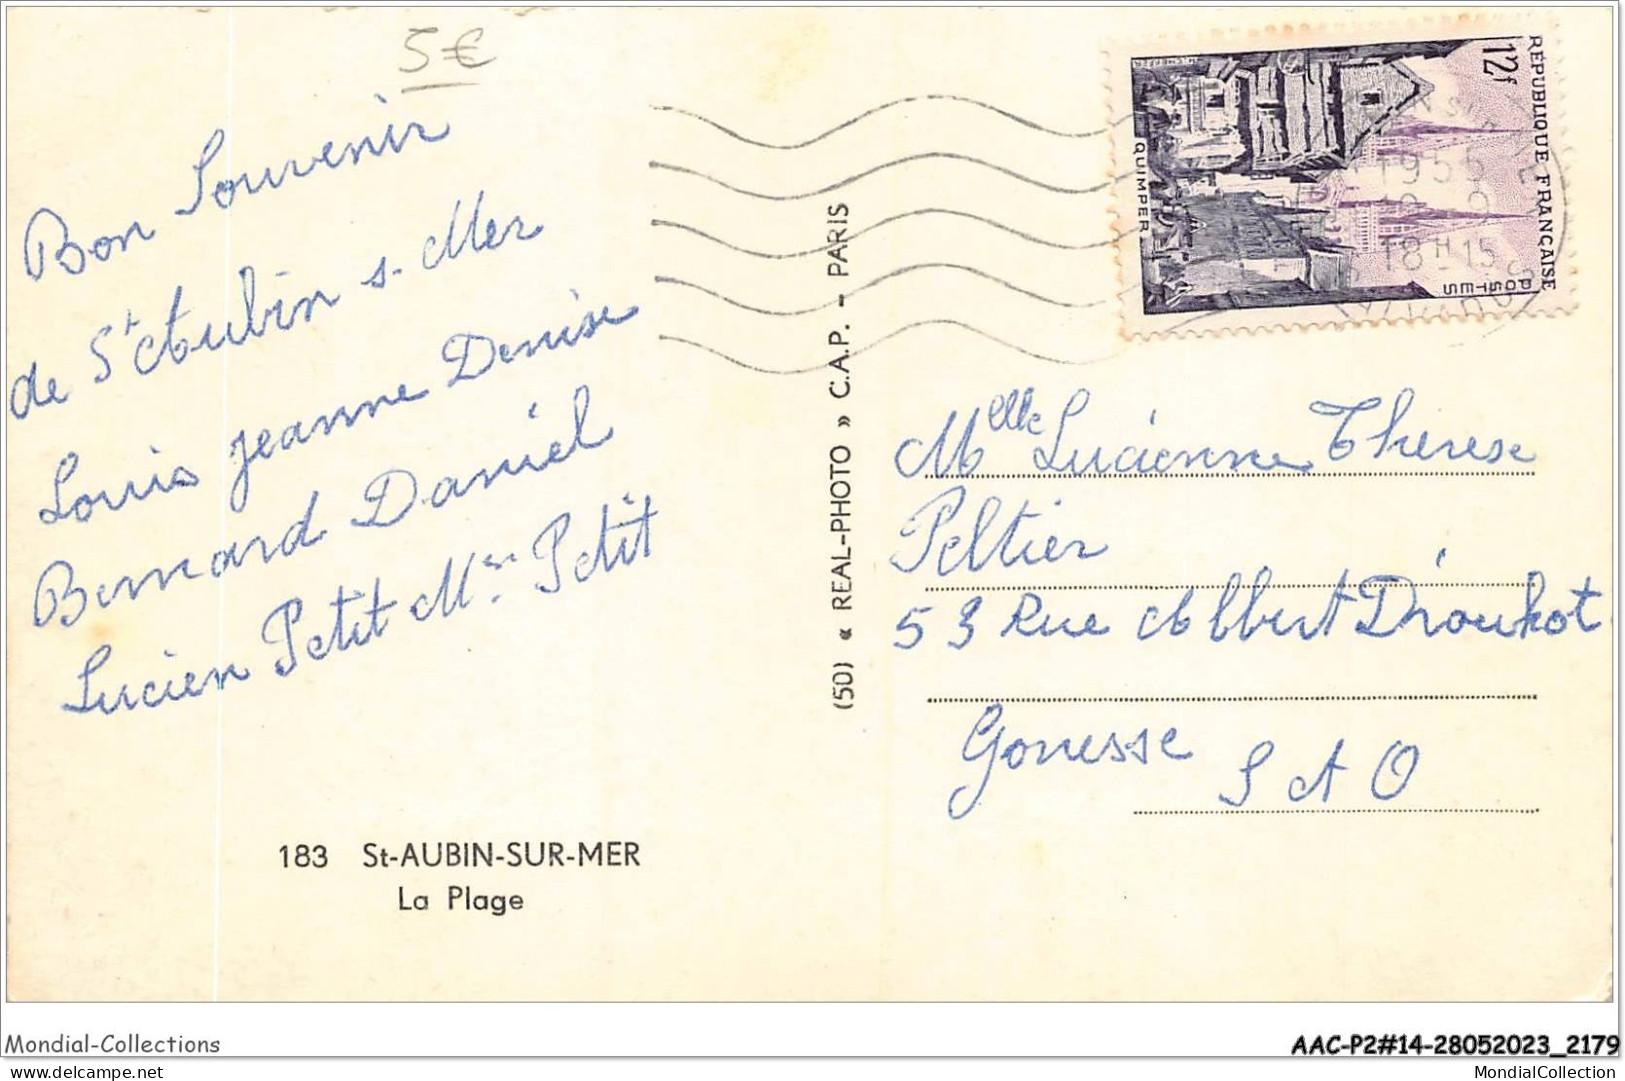 5€
Bon Souvenir
de St Aubin s. Mer
Louis Jeanne Denise
Bernard Daniel
Lucien Petit Mme Petit
183 St-AUBIN-SUR-MER
La Plage
(50) « REAL-PHOTO » C.A.P. - PARIS
RÉPUBLIQUE FRANÇAISE
12f
POSTES
QUIMPER
1955
18H15
CALVADOS
Melle Lucienne Therese
Peltier
53 Rue Albert
Gonesse
S et O
Mondial-Collections
AAC-P2#14-28052023_2179
https://www.delcampe.net
MondialCollection